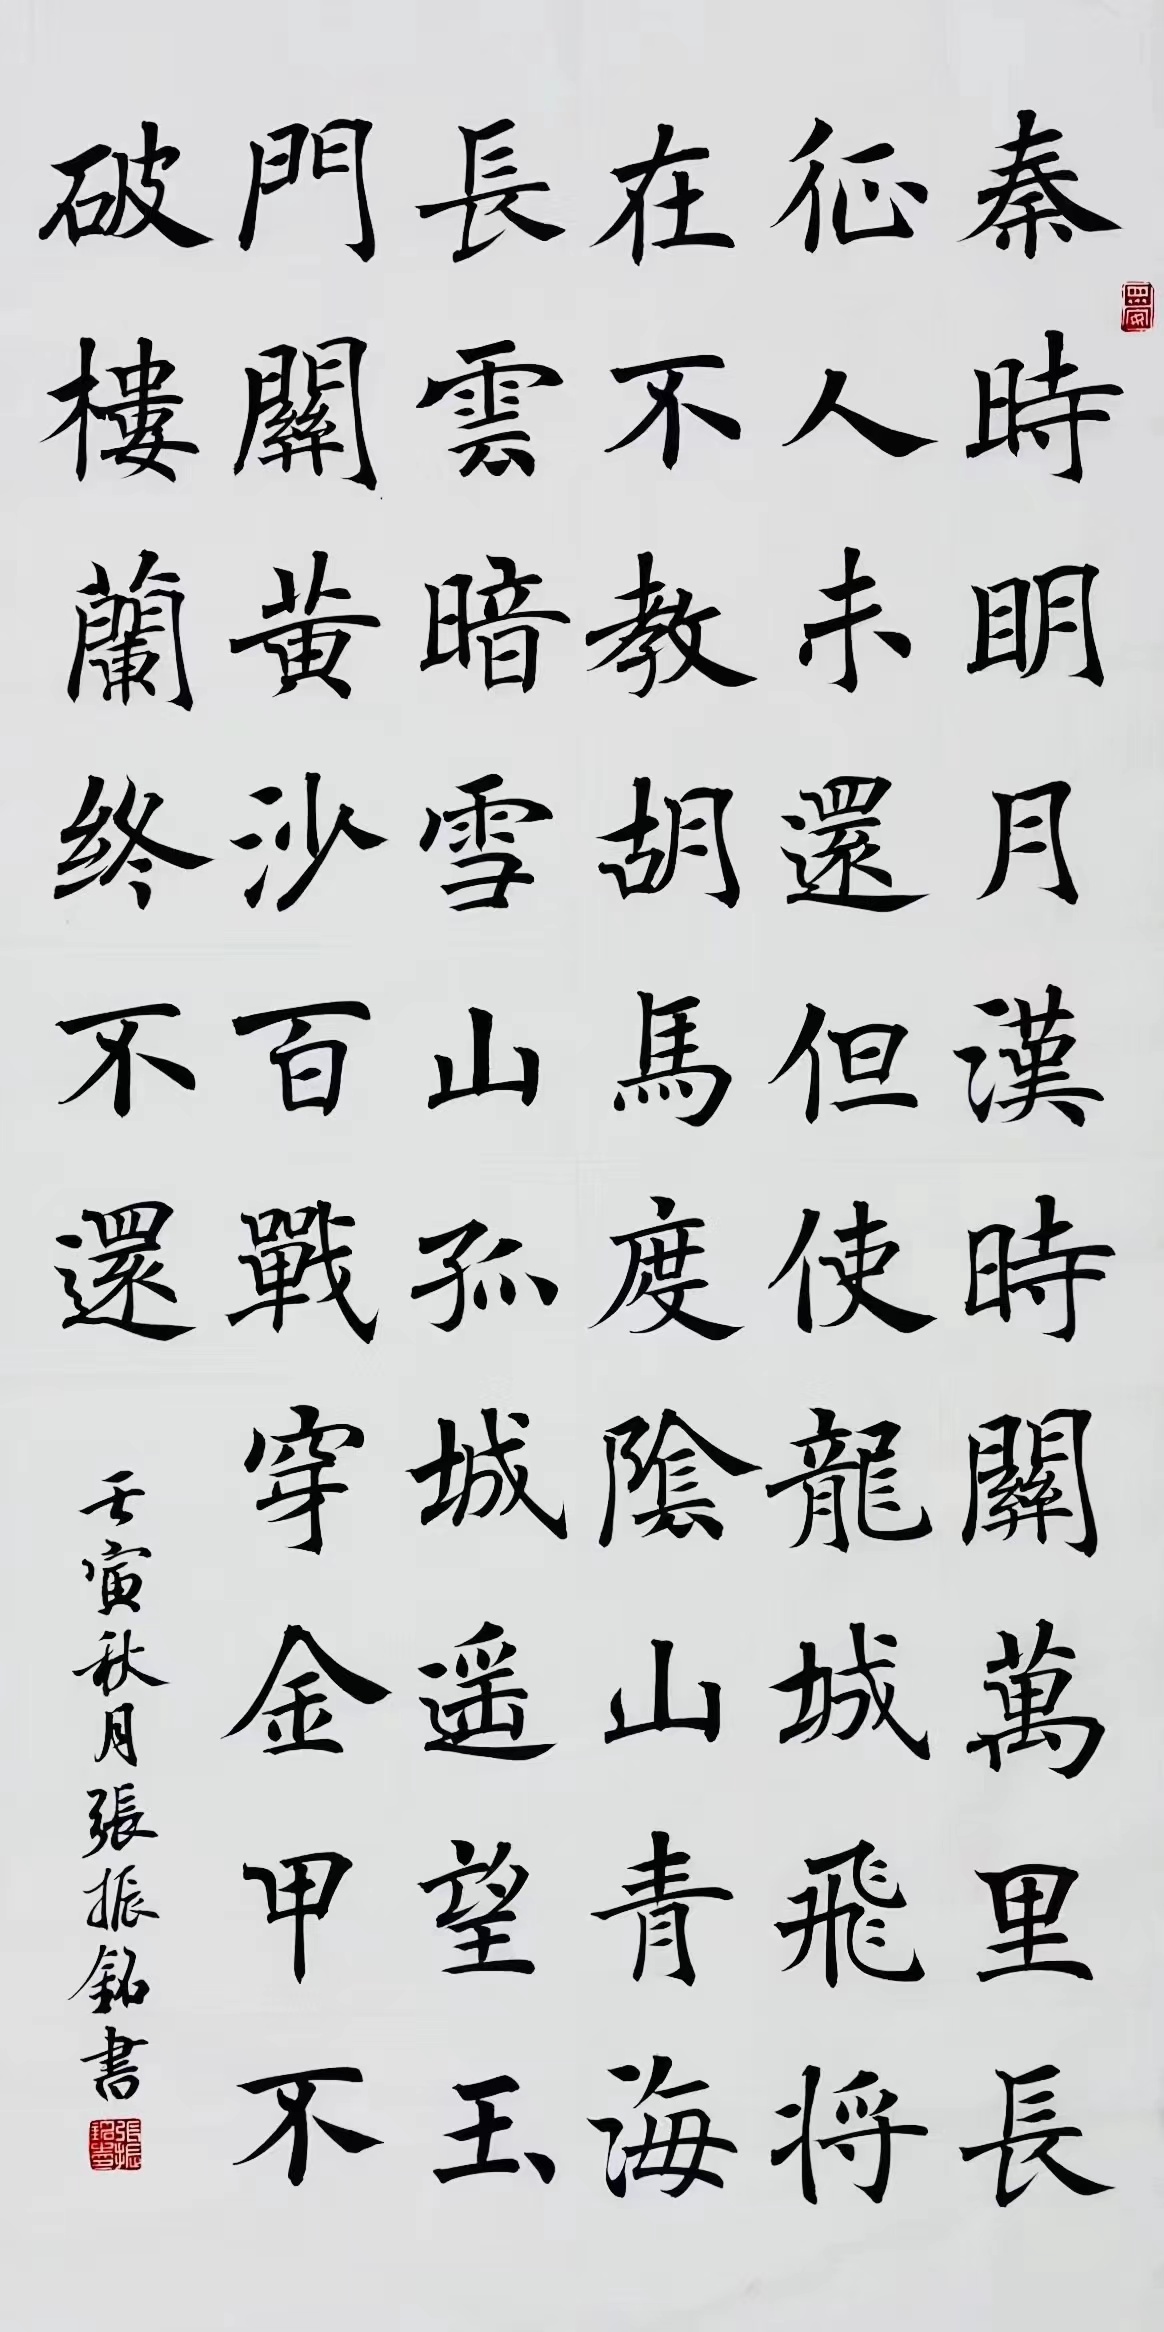 秦時明月漢時關萬里長
征人未還但使龍城飛将
在不教胡馬度陰山青海
長雲暗雪山孤城遥望玉
門關黄沙百戰穿金甲不
破樓蘭终不還
壬寅秋月張振銘書